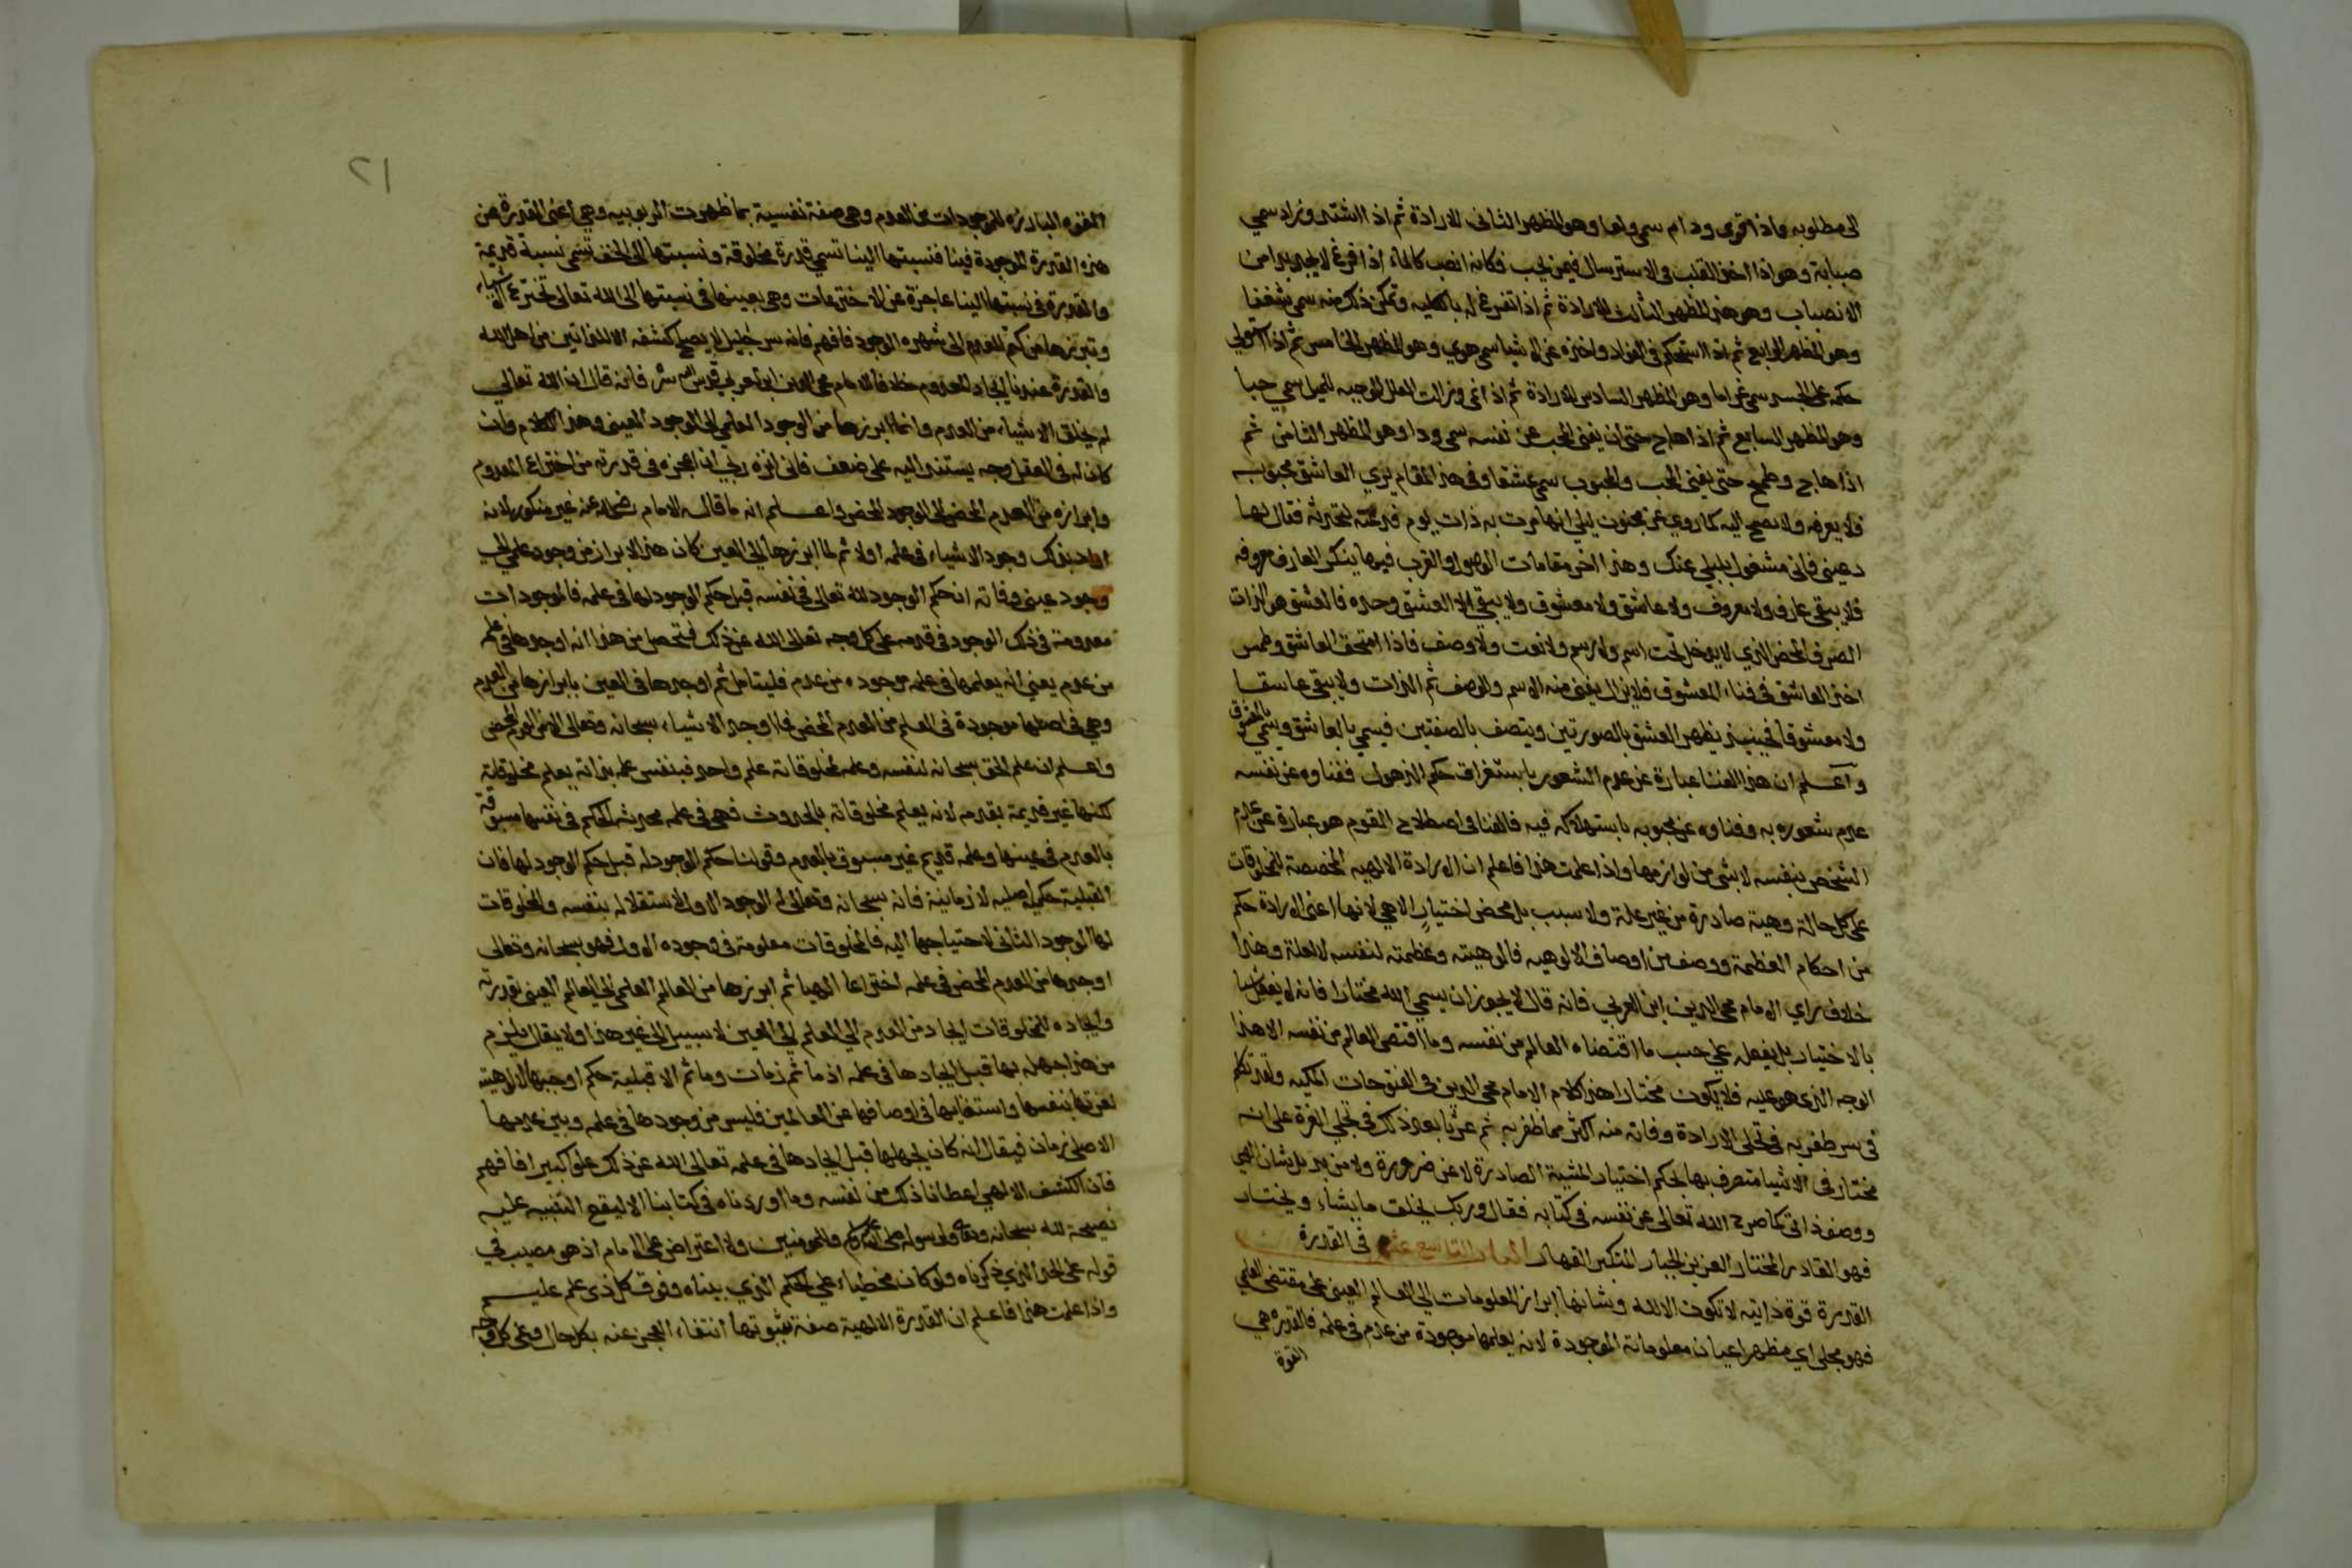 الى مطلوبه واذا قوى ودام سمى ولعا وهو المظهر الثانى للارادة ثم اذا اشتد وزاد سمي
صبابة وهو اذا اخذ القلب فى الاسترسال فيمن يحب فكانه انصب كالماء اذا افرغ لا يجد بدا من
الانصباب وهو هذا المظهر الثالث للارادة ثم اذا تفرغ له بالكليه وتمكن ذلك منه سمي شغفا
وهو المظهر الرابع ثم اذا استحكم فى الفواد واخذه عن الاشيا سمى هوي وهو المظهر الخامس ثم اذا استولي
حكمه على الجسد سمي غراما وهو المظهر السادس للارادة ثم اذا نمى وزالت العلل الموجبه للميل سمي حبا
وهو المظهر السابع ثم اذا هاج حتى ان يفنى المحب عن نفسه سمى ودا وهو المظهر الثامن ثم
اذا هاج وطمح حتى يفنى المحب والمحبوب سمي عشقا وفى هذا المقام يري العاشق محبوبه
فلا يعرفه ولا يصيح اليه كما روي عن مجنون ليلي انها مرت به ذات يوم فدعته لتحدثه فقال لها
دعيني فانى مشغول بليلي عنك وهذا اخر مقامات الوصول والقرب فيها ينكر العارف معروفه
فلا يبقى عارف ولا معروف ولا عاشق ولا معشوق ولا يبقى الا العشق وحده فالعشق هو الذات
الصرف المحض الذي لا يدخل تحت اسم ولا رسم ولا نعت ولا وصف فاذا امتحق العاشق وطمس
اخذ العاشق فى فناء المعشوق فلا يزال يفنى منه الاسم والوصف ثم الذات ولا يبقى عاشقا
ولا معشوقا فحينيذ يظهر العشق بالصورتين ويتصف بالصفتين فيسمي بالعاشق ويسمي بالمعشوق
واعلم ان هذا الفنا عبارة عن عدم الشعور باستغراق حكم الذهول ففناوه عن نفسه
عدم شعوره به وفناوه عن محبوبه باستهلاكه فيه فالفنا فى اصطلاح القوم هو عبارة عن عدم
الشخص بنفسه لا بشى من لوازمها واذا علمت هذا فاعلم ان الارادة الالهيه المخصصة للمخلوقات
على كل حالة وهيئة صادرة من غير علة ولا سبب بل محض اختيار الاهي لانها اعنى الارادة حكم
من احكام العظمة ووصف من اوصاف الالوهيه فالوهيته وعظمته لنفسه لا لعلة وهذا
خلاف راي الامام محي الدين ابن العربي فانه قال لا يجوز ان يسمي الله مختارا فانه لا يفعل شيا
بالاختيار بل يفعله علي حسب ما اقتضاه العالم من نفسه وما اقتضى العالم من نفسه الا هذا
الوجه الذى هو عليه فلا يكون مختارا هذا كلام الامام محي الدين فى الفتوحات المكيه ولقد تكلم
فى سر ظفر به فى تجلى الارادة وفاته منه اكثر مما ظفر به ثم عثرنا بعد ذلك فى تجلي العزة على انه
مختار فى الاشيا متصرف بها بحكم اختيار المشية الصادرة لا عن ضرورة ولا من يد بل شان الهي
ووصف ذاتى كما صرح الله تعالى عن نفسه فى كتابه فقال وربك يخلق ما يشاء ويختار
فهو القادر المختار العزيز الجبار المتكبر القهار الباب التاسع عشر فى القدرة
القدرة قوة ذاتيه لا تكون الا لله وشانها ابراز المعلومات الى العالم العينى على مقتضى العلمي
فهو مجلى اي مظهر اعيان معلوماته الموجودة لانه يعلمها موجودة من عدم فى علمه فالقدرة هي
القوة
٢١
القوه البارزه للموجودات من العدم وهى صفة نفسية بها ظهرت الربوبيه وهي اعنى القدرة عن
هذه القدرة الموجودة فينا فنسبتها الينا تسمي قدرة مخلوقة ونسبتها الى الحق تسمى نسبة قديمة
والقدرة فى نسبتها الينا عاجزة عن الاختراعات وهى بعينها فى نسبتها الى الله تعالى تخترع الاشياء
وتبرزها من كتم العدم الى شهده الوجود فافهم فانه سر جليل لا يصلح كشفه الا للذاتيين من اهل الله
والقدرة عندنا ايجاد المعدوم خلافا للامام محي الدين ابن عربي قدس الله سره فانه قال ان الله تعالي
لم يخلق الاشياء من العدم وانما ابرزها من الوجود العلمي الى الوجود العينى وهذا الكلام وان
كان له فى العقل وجه يستند اليه على ضعف فانى انزه ربي ان اعجزه فى قدرته من اختراع المعدوم
وابرازه من العدم المحض الى الوجود المحض واعلم انه ما قاله الامام رضى الله عنه غير منكور لانه
اراد بذلك وجود الاشياء فى علمه اولا ثم لما ابرزها الي العين كان هذا الابراز من وجود علمي الي
وجود عينى وفاته ان حكم الوجود لله تعالى فى نفسه قبل حكم الوجود لها فى علمه فالموجودات
معدومة فى ذلك الوجود فى قدمه على كل وجه تعالى الله عن ذلك فتحصل من هذا انه اوجدها فى علمه
من عدم يعني انه يعلمها فى علمه موجوده من عدم فليتامل ثم اوجدها فى العين بابرازها من العدم
وهي فى اصلها موجودة فى العلم من العدم المحض فما اوجد الاشياء سبحانه وتعالى الا من العدم المحض
واعلم ان علم الحق سبحانه لنفسه وعلمه لمخلوقاته علم واحد فبنفس علمه بذاته يعلم مخلوقاته
لكنها غير قديمة بقدمه لانه يعلم مخلوقاته بالحدوث فهى فى علمه محدثه الحكم فى نفسها مسبوقة
بالعدم فى عينها وعلمه قديم غير مسبوق بالعدم وقولنا حكم الوجود له قبل حكم الوجود لها فان
القبلية حكمية اصليه لا زمانية فانه سبحانه وتعالى له الوجود الاول لاستقلاله بنفسه والمخلوقات
لها الوجود الثانى لاحتياجها اليه فالمخلوقات معلومة فى وجوده الاول فهو سبحانه وتعالى
اوجدها من العدم المحض فى علمه اختراعا الهيا ثم ابرزها من العالم العلمى الى العالم العينى بقدرته
وايجاده للمخلوقات ايجاد من العدم الي العلم الي العين لا سبيل الى غير هذا ولا يقال يلزم
من هذا جهله بها قبل ايجادها فى علمه اذ ما ثم زمان وما ثم الا قبلية حكم اوجبها الالوهية
لعزتها بنفسها واستغنايها فى اوصافها عن العالمين فليس من وجودها فى علمه وبين عدمها
الاصلى زمان فيقال انه كان يجهلها قبل ايجادها فى علمه تعالى الله عن ذلك علوا كبيرا فافهم
فان الكشف الالهي اعطانا ذلك من نفسه وما اوردناه فى كتابنا الا ليقع التنبيه عليه
نصيحة لله سبحانه وتعالى ولرسوله صلى الله عليه وسلم وللمومنين ولا اعتراض على الامام اذ هو مصيب في
قوله على الحد الذي ذكرناه ولو كان مخطياء علي الحكم الذي بيناه وفوق كل ذى علم عليم
واذا علمت هذا فاعلم ان القدرة الالهية صفة بثبوتها انتفاء العجز عنه بكل حال وعلى كل وجه